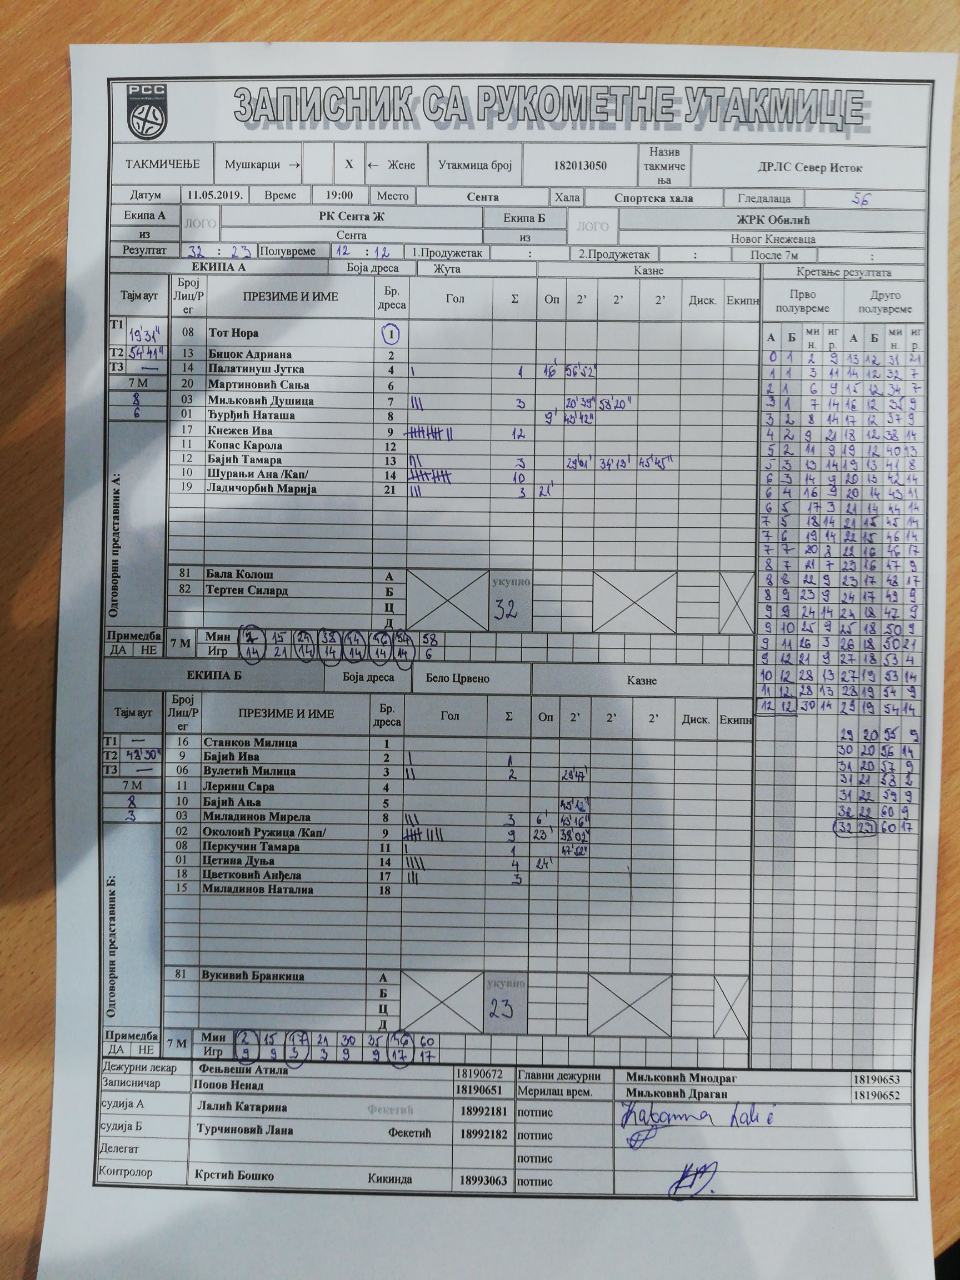 РСС
ЗАПИСНИК СА РУКОМЕТНЕ УТАКМИЦЕ
ТАКМИЧЕЊЕ Мушкарци → X ← Жене Утакмица број 182013050 Назив такмичења ДРЛС Север Исток
Датум 11.05.2019. Време 19:00 Место Сента Хала Спортска хала Гледалаца 56
Екипа А ЛОГО РК Сента Ж Екипа Б ЛОГО ЖРК Обилић
из Сента из Новог Кнежевца
Резултат 32 : 23 Полувреме 12 : 12 1.Продужетак : 2.Продужетак : После 7м :
ЕКИПА А Боја дреса Жута Казне Кретање резултата
Тајм аут Број Лиц/Рег ПРЕЗИМЕ И ИМЕ Бр. дреса Гол Σ Оп 2' 2' 2' Диск. Екипн Прво полувреме Друго полувреме
А Б мин. игр. А Б мин. игр.
Т1 19'31"
08 Тот Нора 1
Т2 54'41" 13 Бицок Адриана 2
Т3 — 14 Палатинуш Јутка 4 | 1 16' 56'52"
7 М 20 Мартиновић Сања 6
8 03 Миљковић Душица 7 ||| 3 20'39" 58'20"
6 01 Ђурђић Наташа 8 9' 43'42"
17 Кнежев Ива 9 12
11 Копас Карола 12
12 Бајић Тамара 13 3 34'13" 45'45"
10 Шурањи Ана /Кап/ 14 10
19 Ладичорбић Марија 21 ||| 3 21'
Одговорни представник А:
81 Бала Колош А укупно
82 Тертен Силард Б 32
Ц
Д
Примедба 7 М Мин 15 38 58
ДА НЕ Игр 14 21 14 14 14 14 14 6
0 1 2 9 13 12 31 21
1 1 3 11 14 12 32 7
2 1 6 9 15 12 34 7
3 1 7 14 16 12 35 9
3 2 8 14 17 12 37 9
4 2 9 21 18 12 38 14
5 2 11 9 19 12 40 13
5 3 13 14 19 13 41 8
6 3 14 9 20 13 42 14
6 4 16 9 20 14 43
6 5 17 3 21 14 44 14
7 5 18 14 21 15 45 14
7 6 19 14 22 15 46 14
7 7 20 8 22 16 46 17
8 7 21 7 23 16 47 9
8 8 22 9 23 17 48 17
8 9 23 9 24 17 49 9
9 9 24 14 24 18 9
9 10 25 9 25 18 50 9
9 11 26 3 26 18 50 21
9 12 9 27 18 53 4
10 12 28 13 27 19 53 14
11 12 28 13 28 19 54 9
12 12 30 14 29 19 54 14
29 20 55 9
30 20 56 14
31 20 57 9
31 21 58 2
31 22 59 9
32 22 60 9
32 23 60 17
ЕКИПА Б Боја дреса Бело Црвено Казне
Тајм аут Број Лиц/Рег ПРЕЗИМЕ И ИМЕ Бр. дреса Гол Σ Оп 2' 2' 2' Диск. Екипн
Т1 — 16 Станков Милица 1
Т2 48'30" 9 Бајић Ива 2 | 1
Т3 — 06 Вулетић Милица 3 || 2 29'47"
7 М 11 Леринц Сара 4
8 10 Бајић Ања 5 45'12"
3 03 Миладинов Мирела 8 ||| 3 6' 43'16"
02 Околоић Ружица /Кап/ 9 9 23' 38'02"
08 Перкучин Тамара 11 | 1 47'52"
01 Цетина Дуња 14 |||| 4 24'
18 Цветковић Анђела 17 ||| 3
15 Миладинов Наталиа 18
Одговорни представник Б:
81 Вукивић Бранкица А укупно
Б 23
Ц
Д
Примедба 7 М Мин 2 15 17 21 30 35 46 60
ДА НЕ Игр 9 9 3 3 9 9 17 17
Дежурни лекар Фењвеши Атила 18190672 Главни дежурни Миљковић Миодраг 18190653
Записничар Попов Ненад 18190651 Мерилац врем. Миљковић Драган 18190652
судија А Лалић Катарина Фекетић 18992181 потпис
судија Б Турчиновић Лана Фекетић 18992182 потпис
Делегат потпис
Контролор Крстић Бошко Кикинда 18993063 потпис